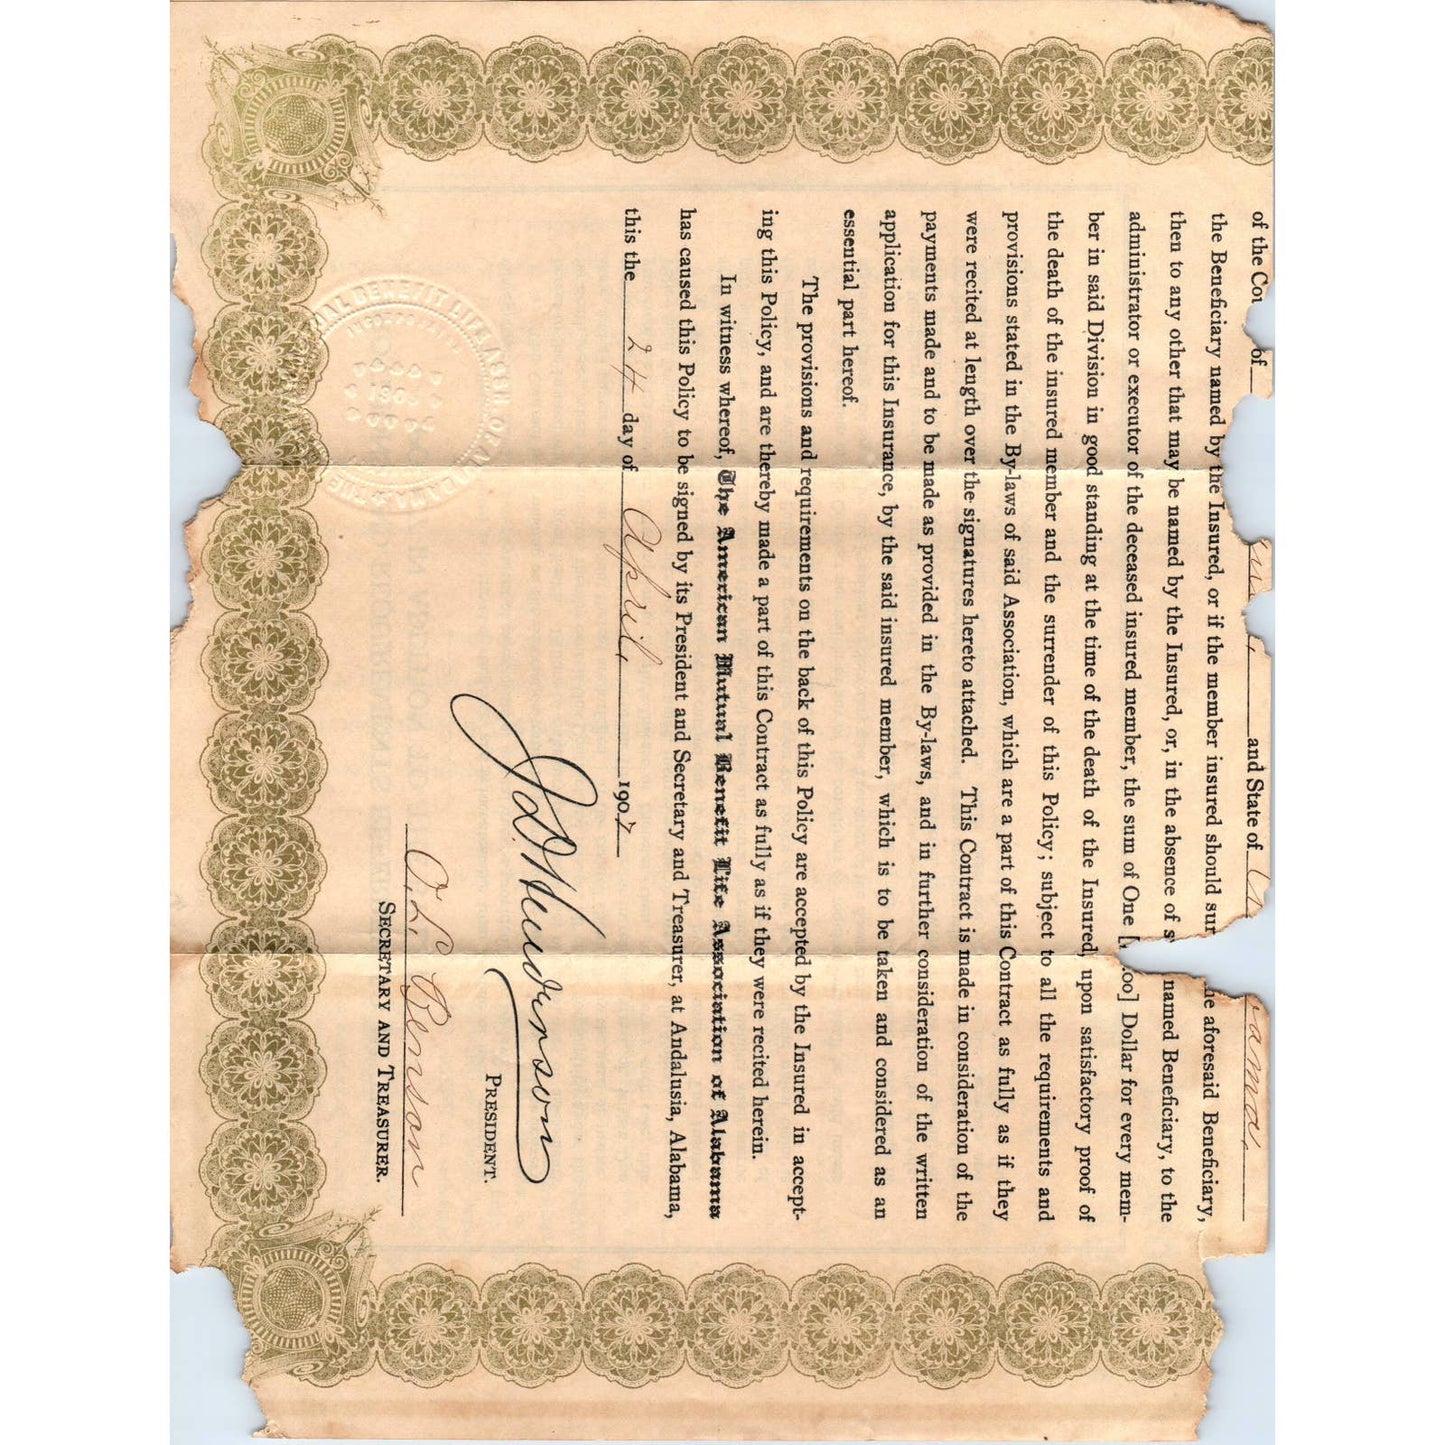 of the Cou of and State of
the Beneficiary named by the Insured, or if the member insured should sur he aforesaid Beneficiary,
then to any other that may be named by the Insured, or, in the absence of s named Beneficiary, to the
administrator or executor of the deceased insured member, the sum of One [ .00] Dollar for every mem-
ber in said Division in good standing at the time of the death of the Insured, upon satisfactory proof of
the death of the insured member and the surrender of this Policy; subject to all the requirements and
provisions stated in the By-laws of said Association, which are a part of this Contract as fully as if they
were recited at length over the signatures hereto attached. This Contract is made in consideration of the
payments made and to be made as provided in the By-laws, and in further consideration of the written
application for this Insurance, by the said insured member, which is to be taken and considered as an
essential part hereof.
The provisions and requirements on the back of this Policy are accepted by the Insured in accept-
ing this Policy, and are thereby made a part of this Contract as fully as if they were recited herein.
In witness whereof, The American Mutual Benefit Life Association of Alabama
has caused this Policy to be signed by its President and Secretary and Treasurer, at Andalusia, Alabama,
this the 24 day of April, 1907
J. D. Henderson
PRESIDENT.
O. L. Benson
SECRETARY AND TREASURER.
BENEFIT LIFE ASSN. OF
INCORPORATED
1905